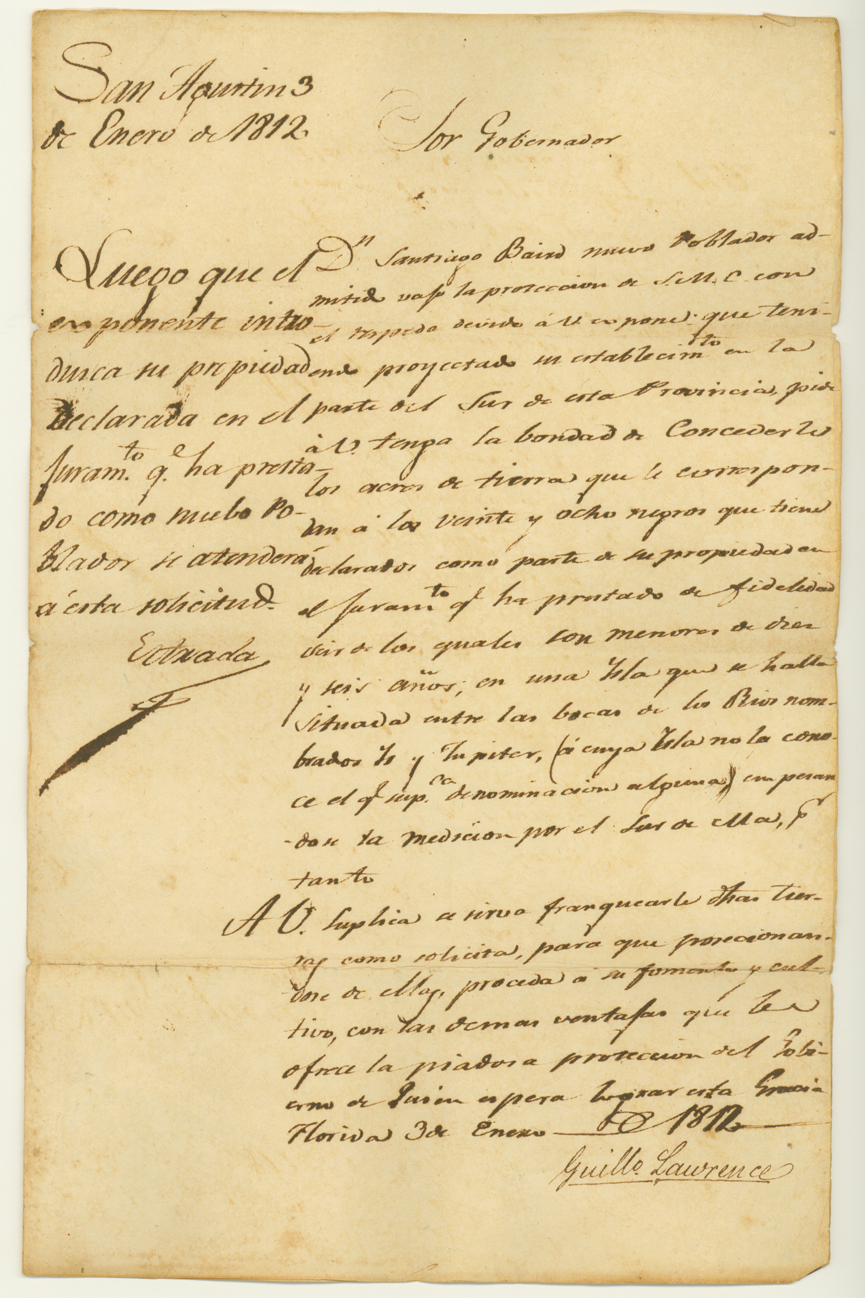 San Agustin 3
de Enero de 1812
Luego que el
exponente intro-
dusca su propiedad
declarada en el
Juram.to q.e ha presta-
do como nuebo Po-
blador se atenderá
á esta solicitud.
Estrada
Sor Gobernador
Dn Santiago Baird nuevo Poblador ad-
mitido vajo la proteccion de S.M.C. con
el respeto devido á V. expone: que teni-
endo proyectado su establecimto en la
parte del Sur de esta Provincia, pide
à V. tenga la bondad de Concederle
los acres de tierra que le correspon-
dan á los veinte y ocho negros que tiene
declarados como parte de su propiedad en
el Juramto q.e ha prestado de fidelidad
seis de los quales son menores de diez
y seis años; en una Ysla que se halla
situada entre las bocas de los Rios nom-
brados Ys y Jupiter, (á cuya Ysla no la cono-
ce el q.e sup.ca denominacion alguna) empesan-
dose la medicion por el Sur de ella, pr
tanto
A V. Suplica se sirva franquearle dhas tier-
ras como solicita, para que posecionan-
dose de ellas, proceda á su fomento y cul-
tivo, con las demas ventajas que le
ofrece la piadosa proteccion del Gobi-
erno de Quien espera lograr esta Gracia
Florida 3 de Enero de 1812
Guillo. Lawrence